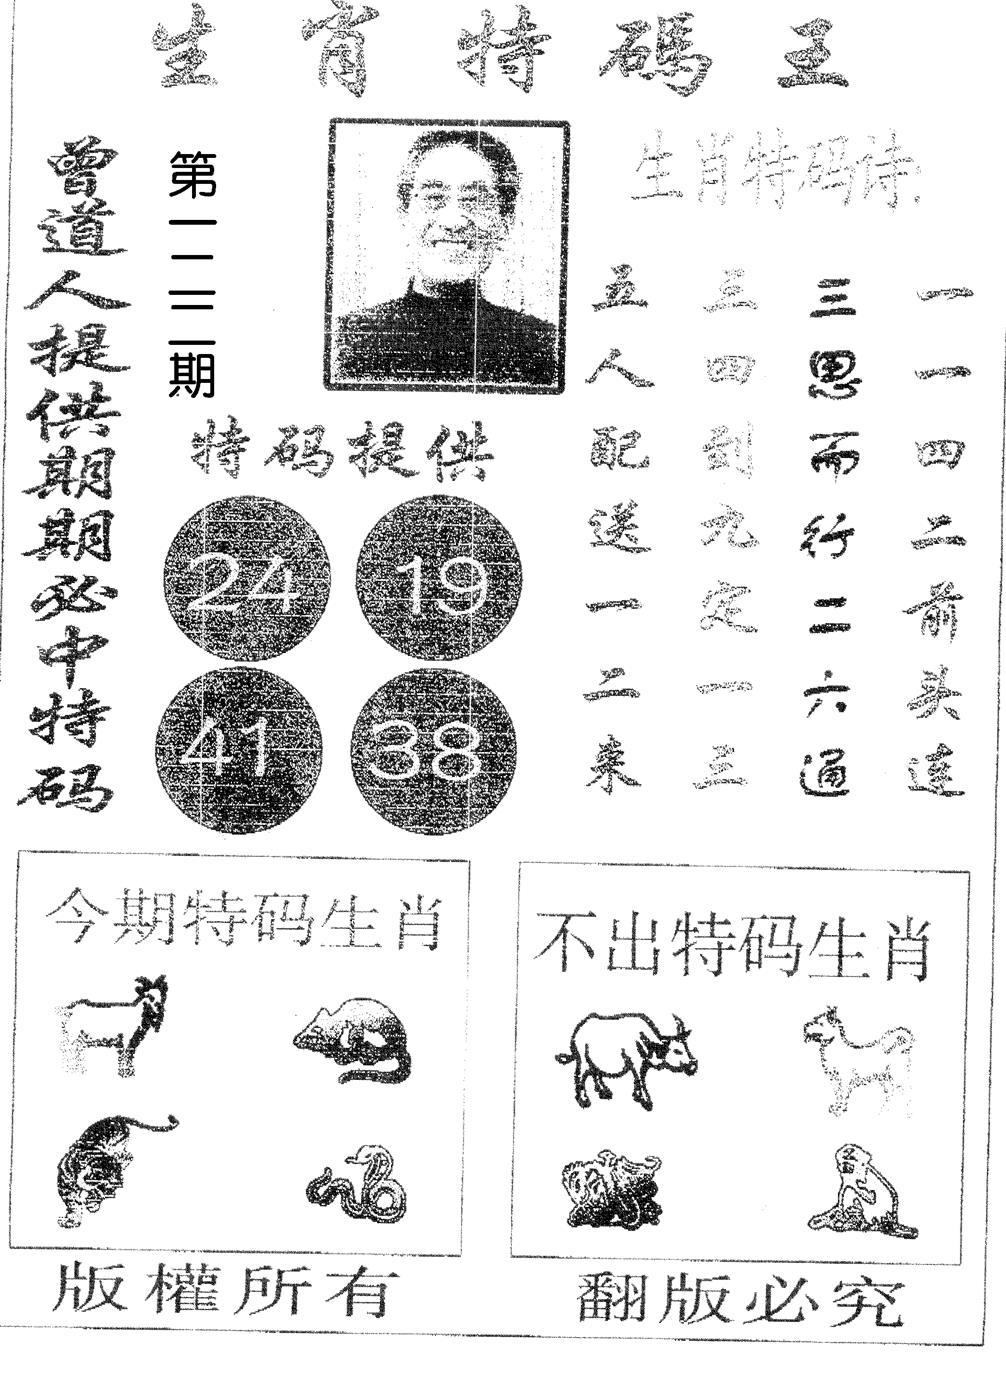 生肖特碼王
曾道人提供期期必中特码
第一二三期
特码提供
24 19
41 38
生肖特码诗:
一一四二前头连
三思而行二六通
三四到九定一三
五人配送一二来
今期特码生肖
不出特码生肖
版權所有
翻版必究